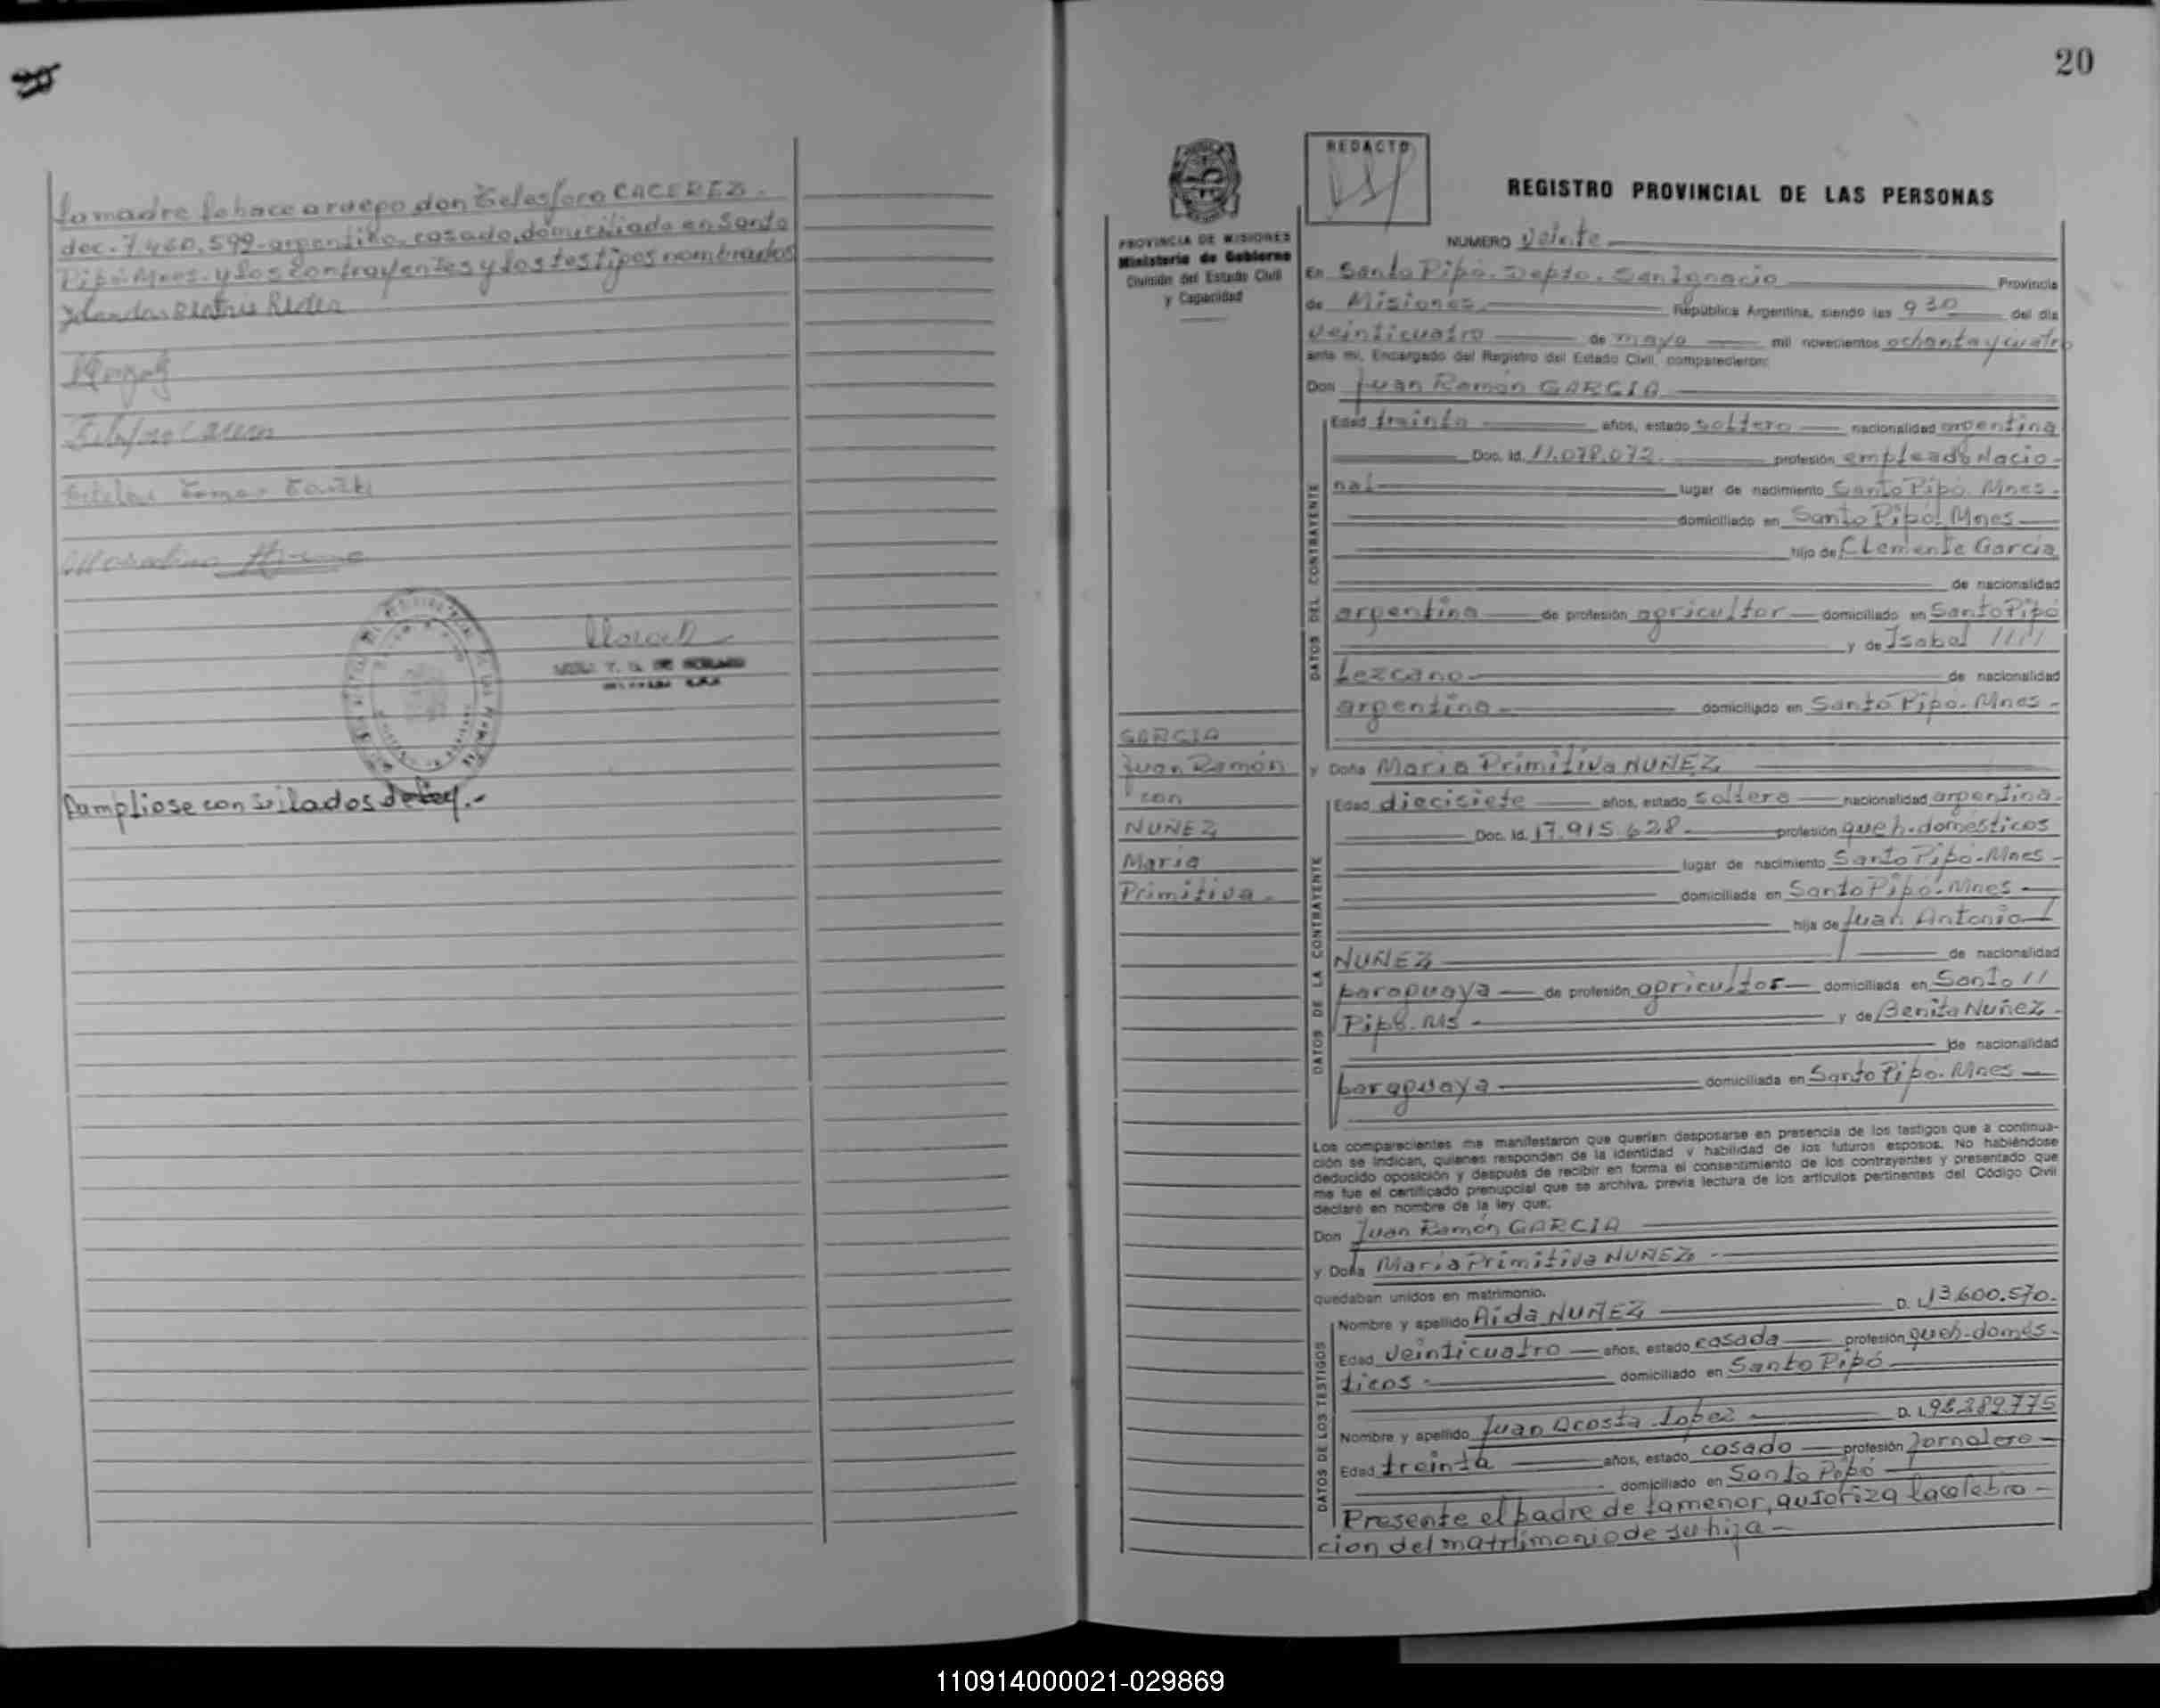 la madre lo hace a ruego don Telesforo CACEREZ.
doc. 7.460.599- argentino, casado, domiciliado en Santo
Pipó. Mnes. y los contrayentes y los testigos nombrados
Telesforo Caceres
Cumpliose con sellados de ley.-
20
REDACTO
REGISTRO PROVINCIAL DE LAS PERSONAS
PROVINCIA DE MISIONES
Ministerio de Gobierno
División del Estado Civil
y Capacidad
NUMERO Veinte
En Santo Pipó. Depto. San Ignacio Provincia
de Misiones República Argentina, siendo las 9 30 del día
veinticuatro de mayo mil novecientos ochenta y cuatro
ante mí, Encargado del Registro del Estado Civil, comparecieron:
Don Juan Ramón GARCIA
DATOS DEL CONTRAYENTE
Edad treinta años, estado soltero nacionalidad argentina
Doc. Id. 11.078.072. profesión empleado Nacio-
nal lugar de nacimiento Santo Pipó. Mnes.
domiciliado en Santo Pipó. Mnes
hijo de Clemente Garcia
de nacionalidad
argentina de profesión agricultor domiciliado en Santo Pipó
y de Isabel ////
Lezcano de nacionalidad
argentina domiciliado en Santo Pipó. Mnes
GARCIA
Juan Ramón
con
NUÑEZ
Maria
Primitiva.
y Doña Maria Primitiva NUÑEZ
DATOS DE LA CONTRAYENTE
Edad diecisiete años, estado soltera nacionalidad argentina
Doc. Id. 17.915.628. profesión queh. domésticos
lugar de nacimiento Santo Pipó. Mnes
domiciliada en Santo Pipó. Mnes
hija de Juan Antonio /
NUÑEZ de nacionalidad
paraguaya de profesión agricultor domiciliada en Santo //
Pipó. Ms y de Benita Nuñez
de nacionalidad
paraguaya domiciliada en Santo Pipó. Mnes
Los comparecientes me manifestaron que querían desposarse en presencia de los testigos que a continua-
ción se indican, quienes responden de la identidad y habilidad de los futuros esposos. No habiéndose
deducido oposición y después de recibir en forma el consentimiento de los contrayentes y presentado que
me fue el certificado prenupcial que se archiva, previa lectura de los artículos pertinentes del Código Civil
declaré en nombre de la ley que:
Don Juan Ramón GARCIA
y Doña Maria Primitiva NUÑEZ
quedaban unidos en matrimonio.
DATOS DE LOS TESTIGOS
Nombre y apellido Aida NUÑEZ D. I. 13.600.570.
Edad veinticuatro años, estado casada profesión queh. domés-
ticos domiciliado en Santo Pipó
Nombre y apellido Juan Acosta Lopez D. I. 92.289.775
Edad treinta años, estado casado profesión Jornalero
domiciliado en Santo Pipó
Presente el padre de la menor, autoriza la celebra-
cion del matrimonio de su hija
110914000021-029869